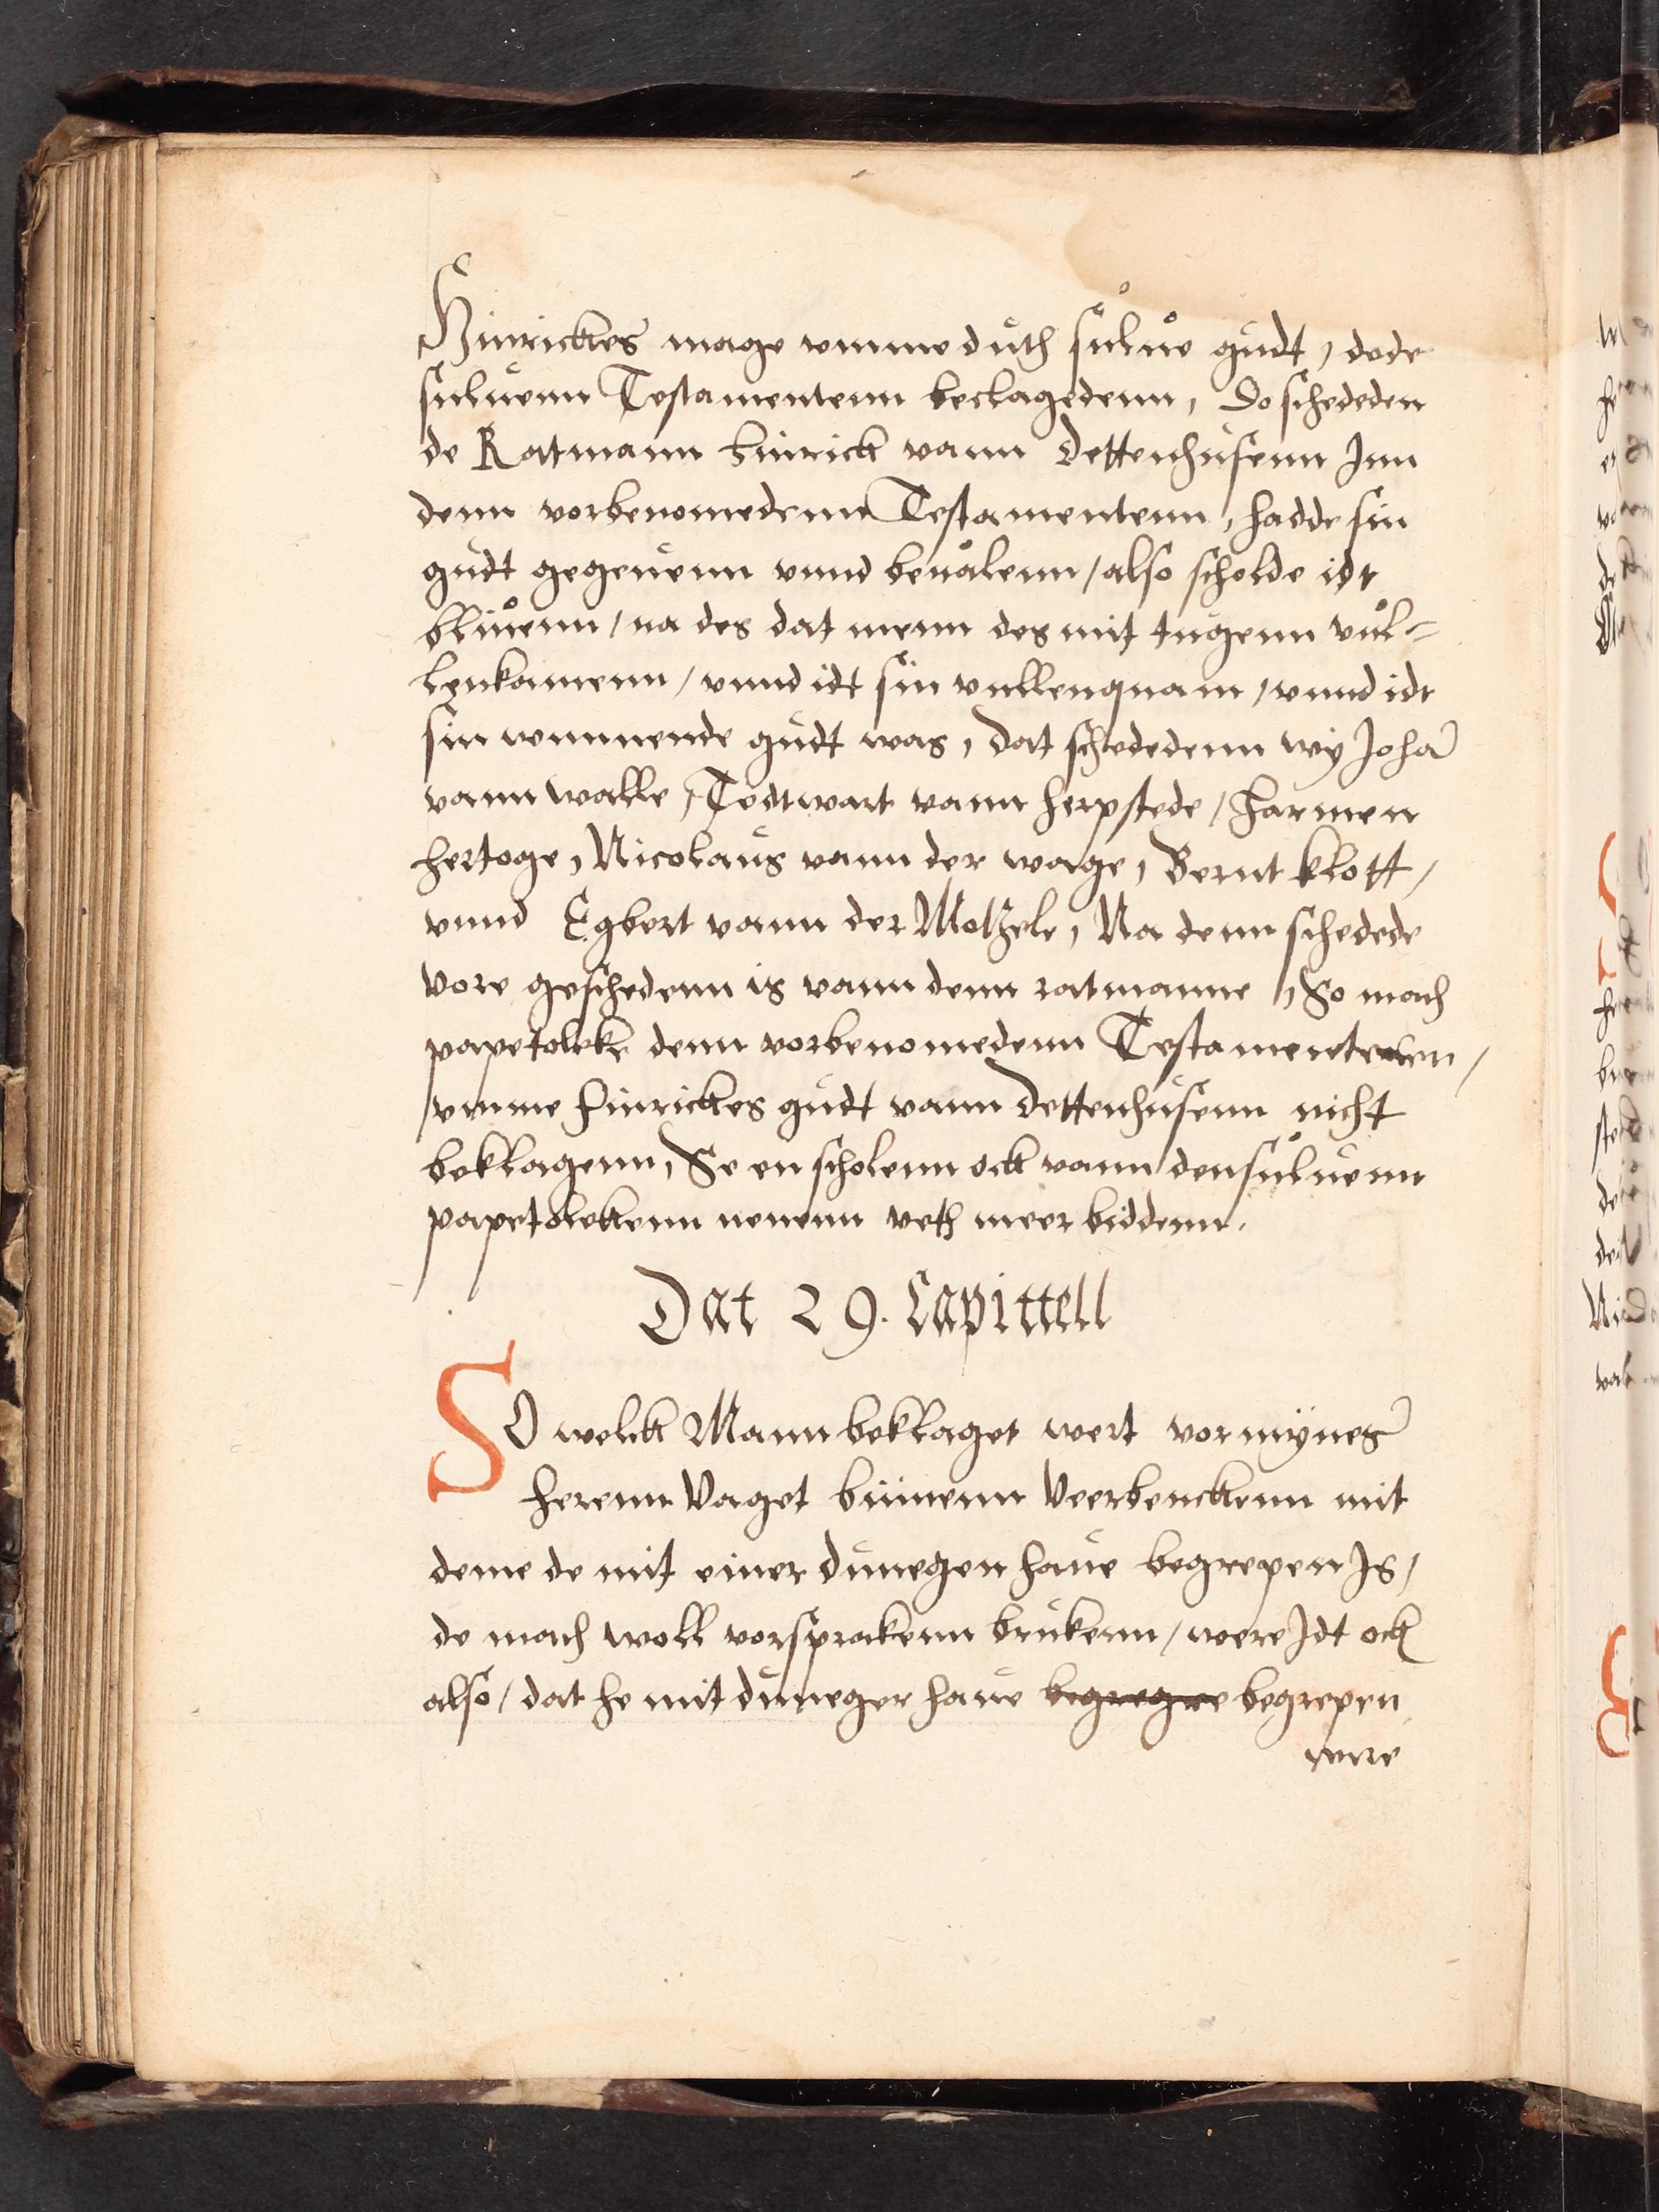 Hinrickes mage umme duth sulue gudt, dede
suluenn Testamentenn beclagedenn, Do schededen
de Ratmann Hinrick vann Dettenhusenn Inn
denn vorbenomedenn Testamentenn, hadde sin
gudt gegeuenn vnnd beualenn / also scholde idt
bliuenn / na des dat menn des mit tugenn vul=
lenkamenn / vnnd idt sin vullenquam / vnnd idt
sin wunnende gudt was, Dat schededenn wy Johā
vann walle, Todtwart vann herpstede / Harmen
hertoge, Nicolaus vann der wage, Bernt klott /
vnnd Egbert vann der Molzele, Na denn schedede
vore geschedenn is vann denn ratmanne, So mach
papetoleke denn vorbenomedenn Testamentenn /
vmme Hinrickes gudt vann Dettenhusenn nicht
beklagenn, Se en scholenn ock vann densuluenn
papetolekenn nenenn veth meer biddenn.
Dat 29. Capittell
SO welck Mann beklaget wert vor mynes
herenn Vaget binnenn Veerbenckenn mit
deme de mit einer duuegen haue begrepen Is /
de mach woll vorsprakenn bruken / were Idt ock
also / dat he mit duueger haue begregre begrepen
were